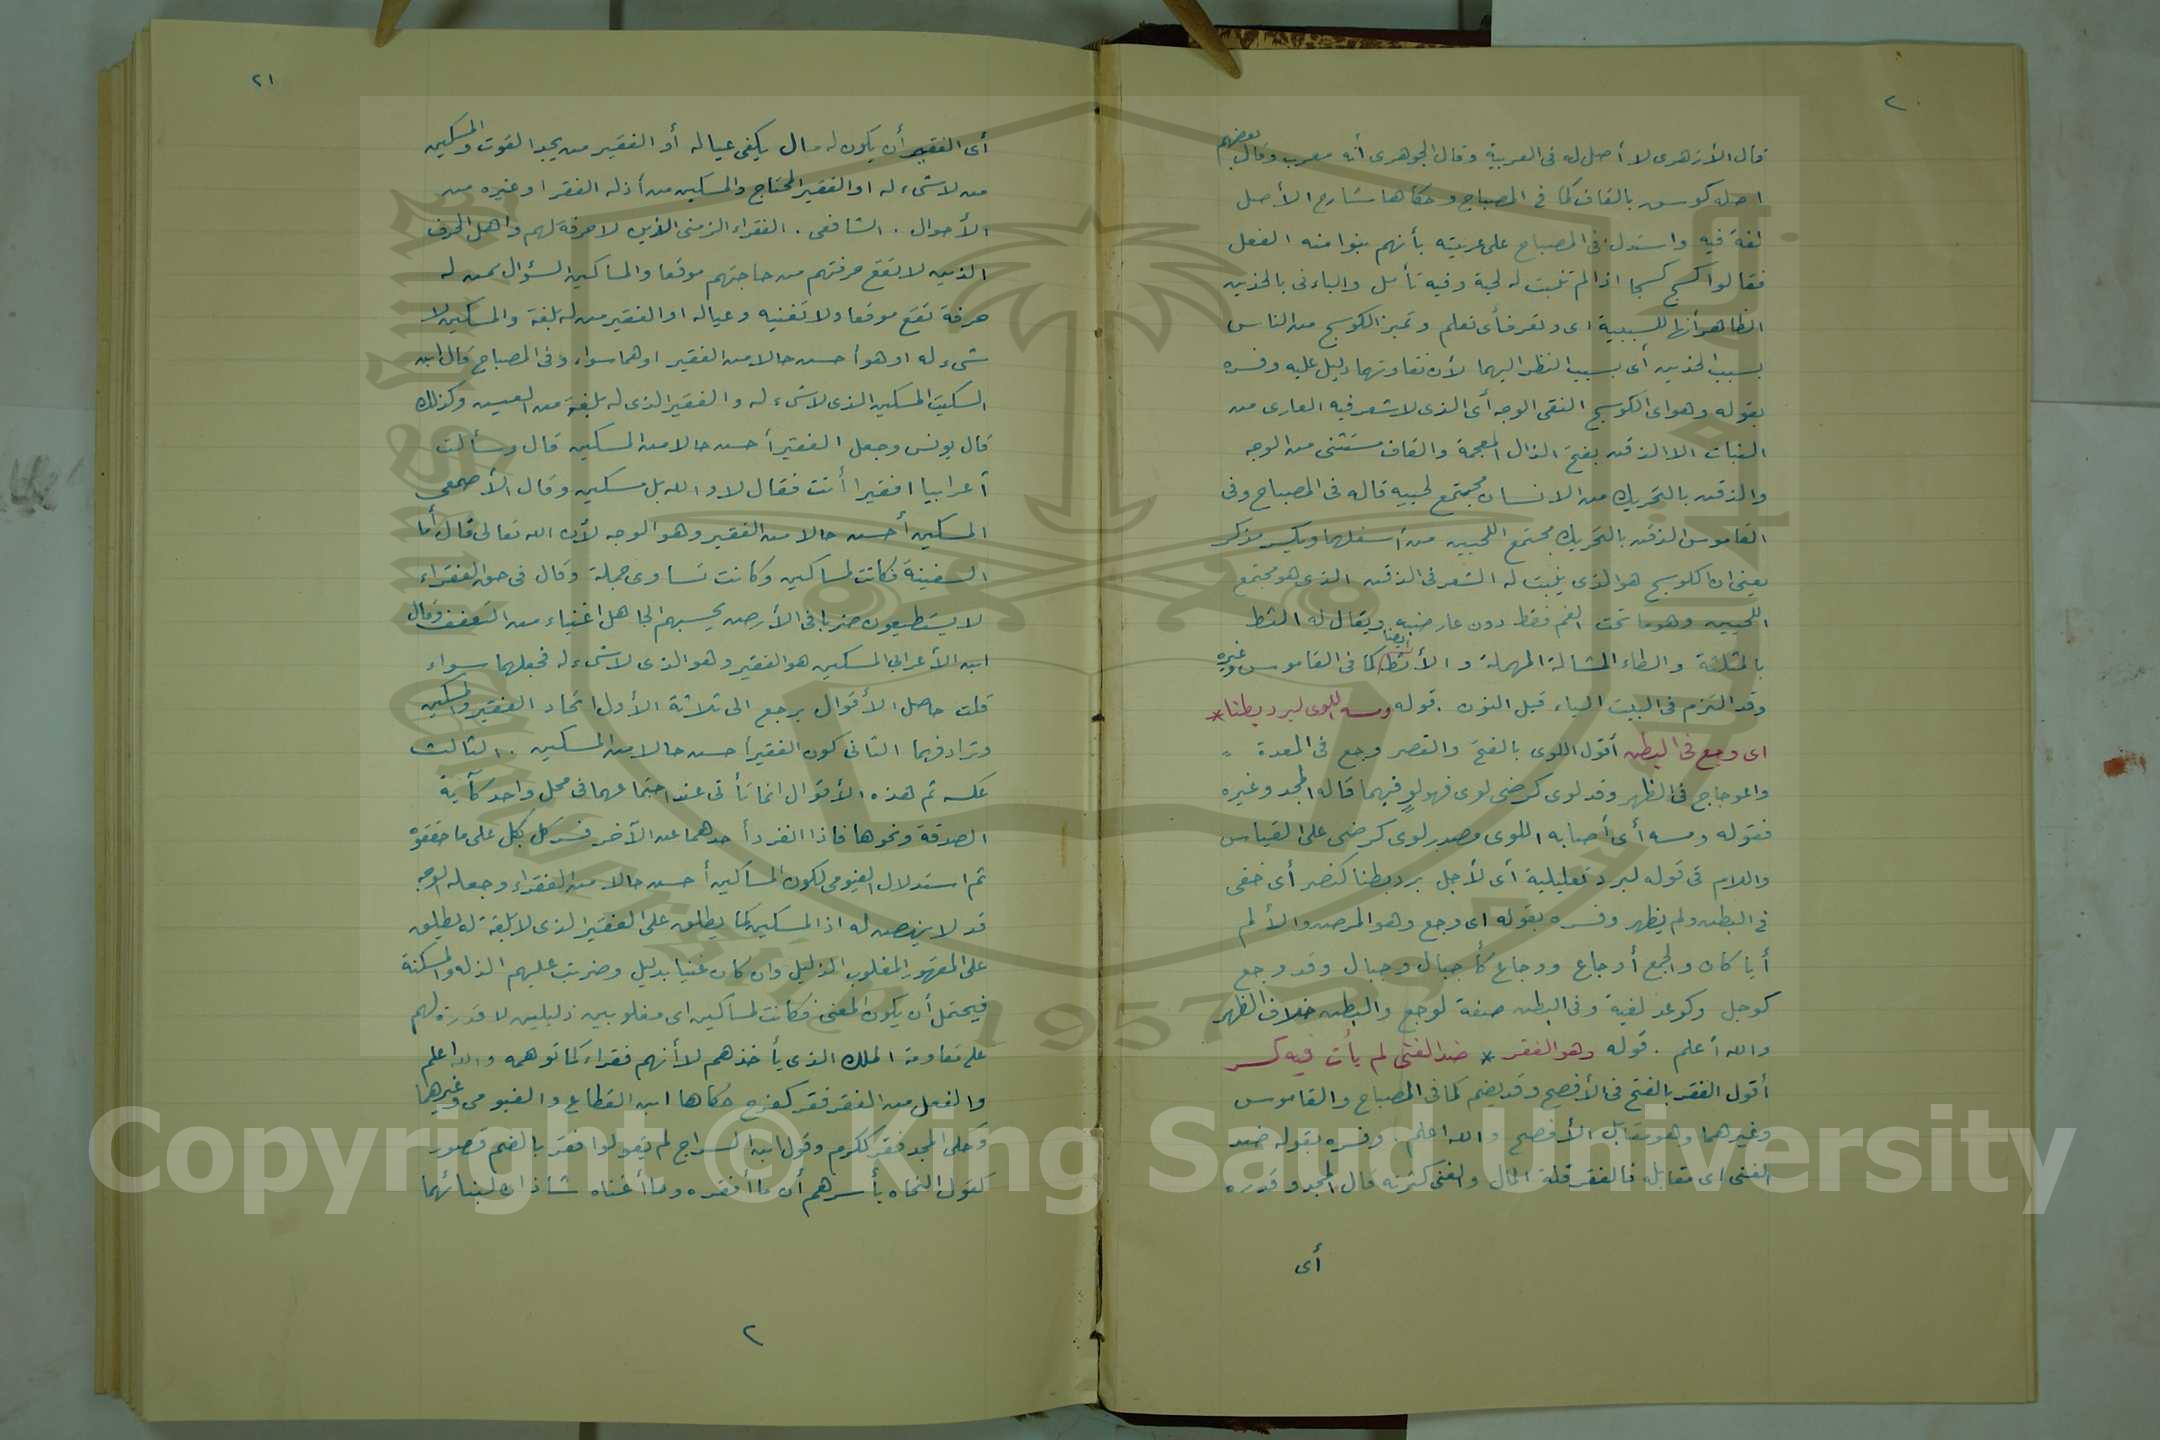 ٢٠
قال الأزهرى لا أصل له فى العربية وقال الجوهرى أنه معرب وقال بعضهم
اصله كوسق بالقاف كما فى المصباح وحكاها شارح الأصل
لغة فيه واستدل فى المصباح على عربيته بأنهم بنوا منه الفعل
فقالوا كسج كسجا اذا لم تنبت له لحية وفيه تأمل والباء فى بالخدين
الظاهر أنها للسببية اى وتعرف أى تعلم وتميز الكوسج من الناس
بسبب الخدين أى بسبب النظر اليهما لأن نقاوتهما دليل عليه وفسره
بقوله وهو اى الكوسج النقى الوجه أى الذى لا شعر فيه العارى من
النبات الا الذقن بفتح الذال المعجمة والقاف مستثنى من الوجه
والذقن بالتحريك من الانسان مجتمع لحييه قاله فى المصباح وفى
القاموس الذقن بالتحريك مجتمع اللحيين من أسفلهما ويكسر مذكر
يعنى ان الكوسج هو الذى ينبت له الشعر فى الذقن الذى هو مجتمع
اللحيين وهو ما تحت الفم فقط دون عارضيه ويقال له الثط
بالمثلثة والطاء المشالة المهملة والأثط ايضا كما فى القاموس وغيره
وقد التزم فى البيت الياء قبل النون . قوله ومسه اللوى لبرد بطنا *
اى وجع فى البطن أقول اللوى بالفتح والقصر وجع فى المعدة
واعوجاج فى الظهر وقد لوى كرضى لوى فهو لوٍ فيهما قاله المجد وغيره
فقوله ومسه أى أصابه اللوى مصدر لوى كرضى على القياس
واللام فى قوله لبرد تعليلية أى لأجل برد بطنا كنصر أى خفى
فى البطن ولم يظهر وفسره بقوله اى وجع وهو المرض والألم
أيا كان والجمع أوجاع ووجاع كأجبال وجبال وقد وجع
كوجل وكوعد لغية وفى البطن صفة لوجع والبطن خلاف الظهر
والله أعلم . قوله وهو الفقر * ضد الغنى لم يأت فيه كسر
أقول الفقر بالفتح فى الأفصح وقد يضم كما فى المصباح والقاموس
وغيرهما وهو مقابل الأفصح والله اعلم . وفسره بقوله ضد
الغنى اى مقابله فالفقر قلة المال والغنى كثرته قال المجد وقدره
أى
٢١
أى الفقير أن يكون له مال يكفى عياله أو الفقير من يجد القوت والمسكين
من لا شىء له او الفقير المحتاج والمسكين من أذله الفقر او غيره من
الأحوال . الشافعى . الفقراء الزمنى الذين لا حرفة لهم واهل الحرف
الذين لا تقع حرفتهم من حاجتهم موقعا والمساكين السؤال ممن له
حرفة تقع موقعا ولا تغنيه وعياله او الفقير من له بلغة والمسكين لا
شىء له او هو أحسن حالا من الفقير او هما سواء وفى المصباح قال ابن
السكيت المسكين الذى لا شىء له والفقير الذى له بلغة من العيش وكذلك
قال يونس وجعل الفقير أحسن حالا من المسكين قال وسألت
أعرابيا افقيرا أنت فقال لا والله بل مسكين وقال الأصمعى
المسكين أحسن حالا من الفقير وهو الوجه لأن الله تعالى قال أما
السفينة فكانت لمساكين وكانت تساوى جملة وقال فى حق الفقراء
لا يستطيعون ضربا فى الأرض يحسبهم الجاهل اغنياء من التعفف وقال
ابن الأعرابى المسكين هو الفقير وهو الذى لا شىء له فجعلهما سواء
قلت حاصل الأقوال يرجع الى ثلاثة الأول اتحاد الفقير والمسكين
وترادفهما الثانى كون الفقير أحسن حالا من المسكين . الثالث
عكسه ثم هذه الأقوال انما تأتى عند اجتماعهما فى محل واحد كآية
الصدقة ونحوها فاذا انفرد أحدهما عن الآخر فسر كل بكل على ما حققوه
ثم استدلال الفيومى لكون المساكين أحسن حالا من الفقراء وجعله الوجه
قد لا ينهض له اذ المسكين كما يطلق على الفقير الذى لا بلغة له يطلق
على المقهور المغلوب الذليل وان كان غنيا بدليل وضربت عليهم الذلة والمسكنة
فيحتمل أن يكون المعنى فكانت لمساكين اى مغلوبين ذليلين لا قدرة لهم
على مقاومة الملك الذى يأخذهم لا أنهم فقراء كما توهمه والله اعلم
والفعل من الفقر فقر كفرح حكاها ابن القطاع والفيومى وغيرهما
وحكى المجد فقر ككرم وقول ابن السراج لم يقولوا فقر بالضم قصور
كقول النحاه بأسرهم أن ما أفقره وما أغناه شاذان لبنائهما
٢
Copyright © King Saud University
1957